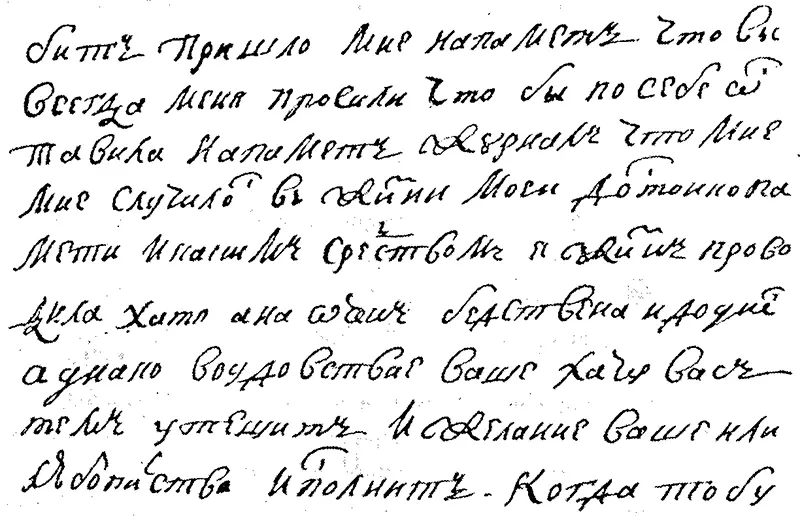 битъ пришло мне напаметъ что вы
всегда меня просили что бы по себе ос
тавила напаметъ журналъ что мне
мне случилос въ жизни моеи достоино па
мети икакимъ средствомъ я жизнь прово
дила хатя ана очень бедствена идоднес
аднако воудовствае ваше хачу васъ
темъ утешитъ ижелание ваше или
любопитства исполнитъ. Когда тобу